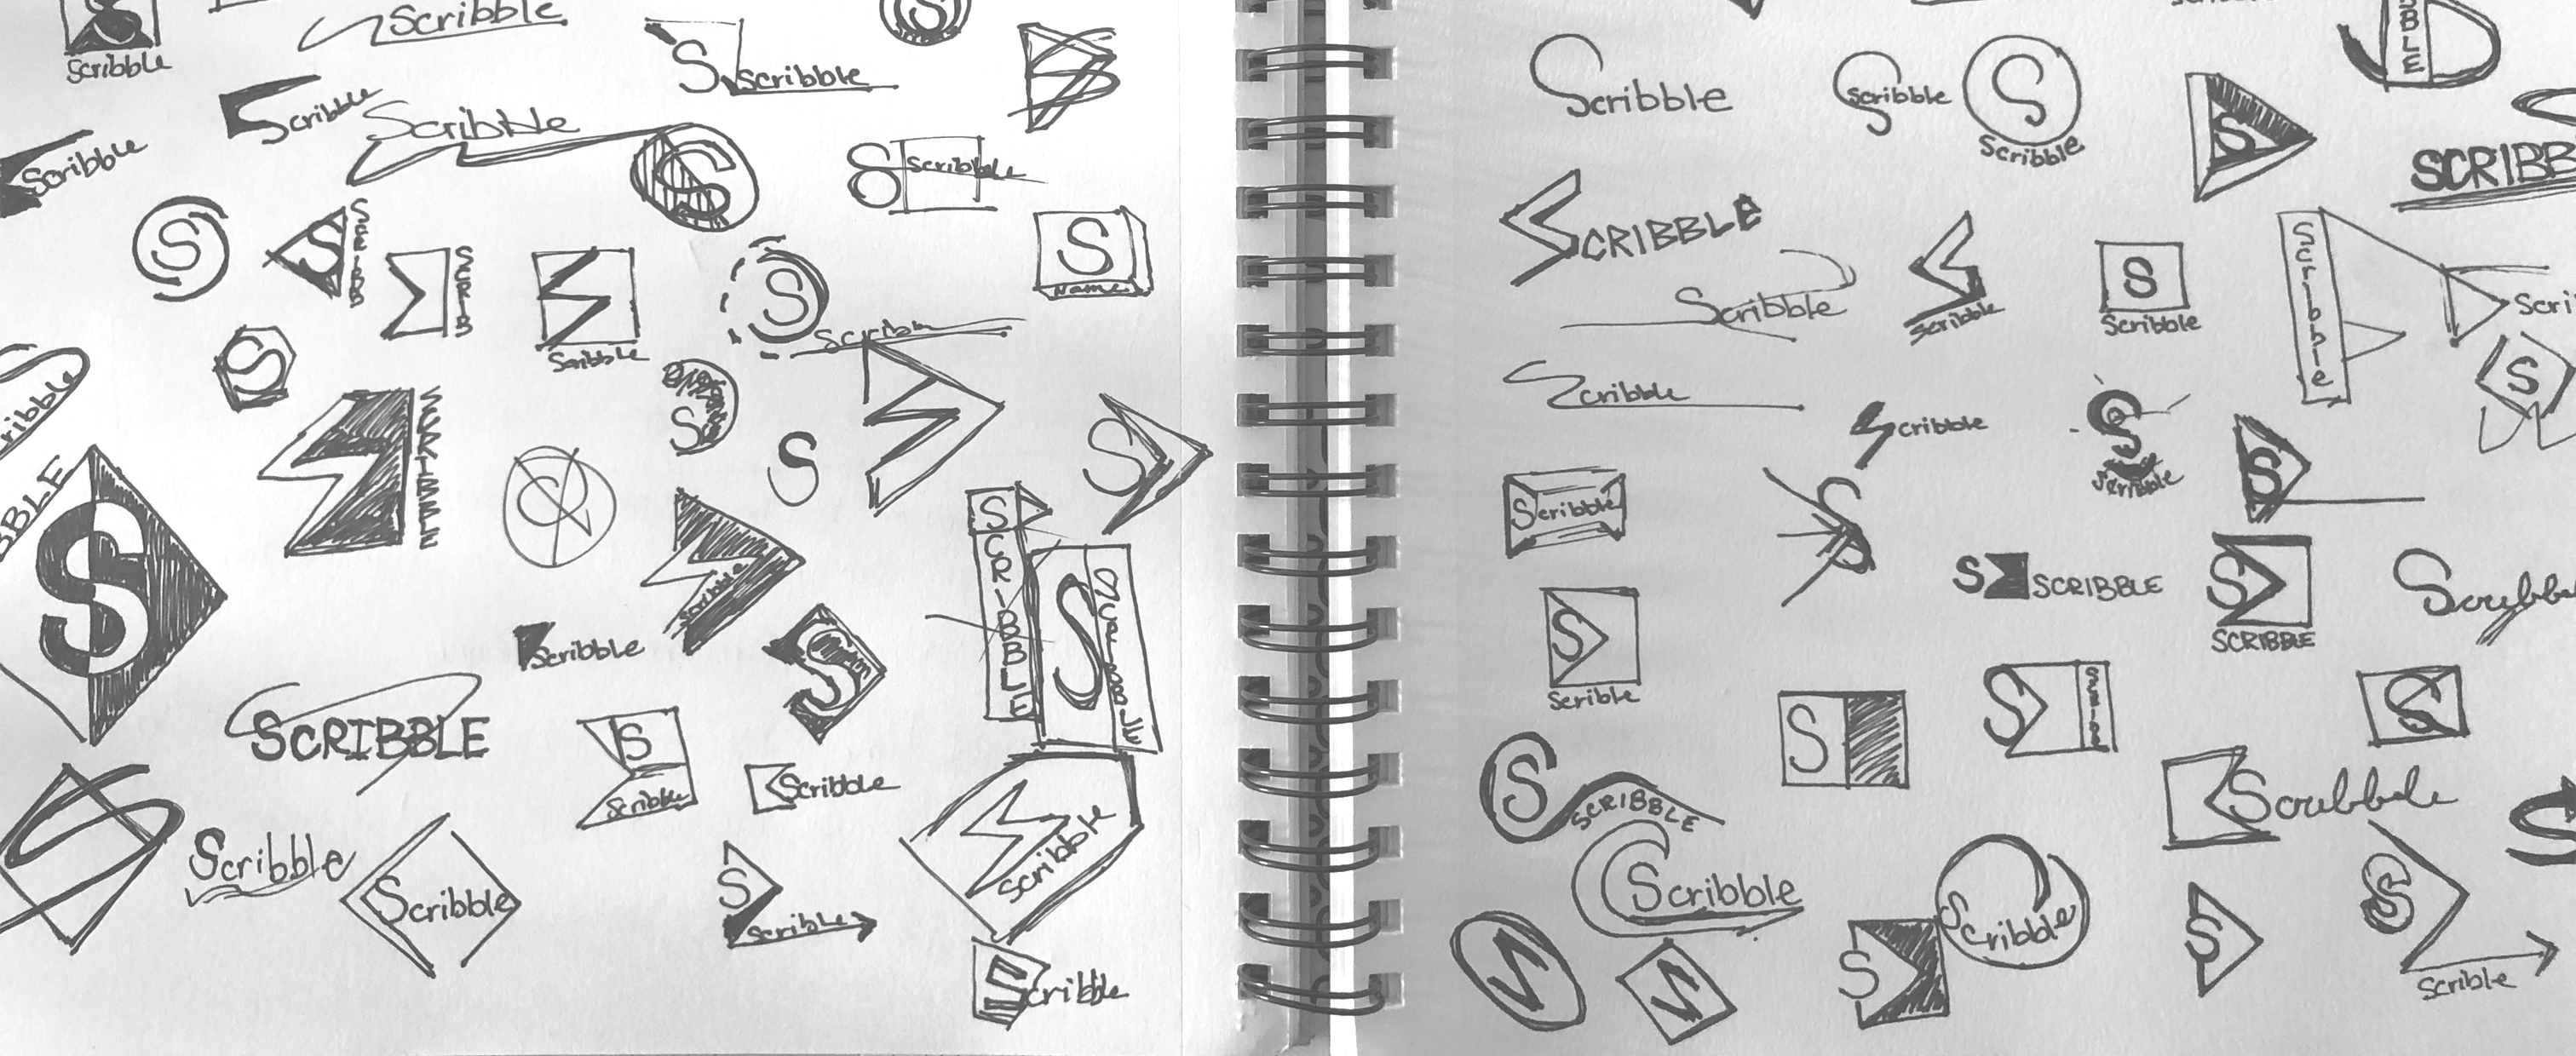 Scribble
Scribble
S
S Scribble
Scribble
Scribble
Scribble
S
S Scribble
S
S SCRIBB
SCRIB
Scribble
S
S
Name
S
Scribble
S
SCRIBBLE
S
S
S
BBLE
S
Scribble
Scribble
S
SCRIBBLE
S
SCRIBBLE
SCRIBBLE
S
Scribble
Scribble
S
Scribble
Scribble
S
Scribble
Scribble
Scribble
S
BLE
Scribble
Scribble
S
Scribble
S
SCRIBB
SCRIBBLE
Scribble
Scribble
S
Scribble
Scri
S
Scribble
Scribble
S
Scribble
S
Scribble
S
S SCRIBBLE
S
SCRIBBLE
S
Scrible
S
S
S
S
SCRIBBLE
Scribble
Scribble
Scribble
S
S
S
S
S
Scrible